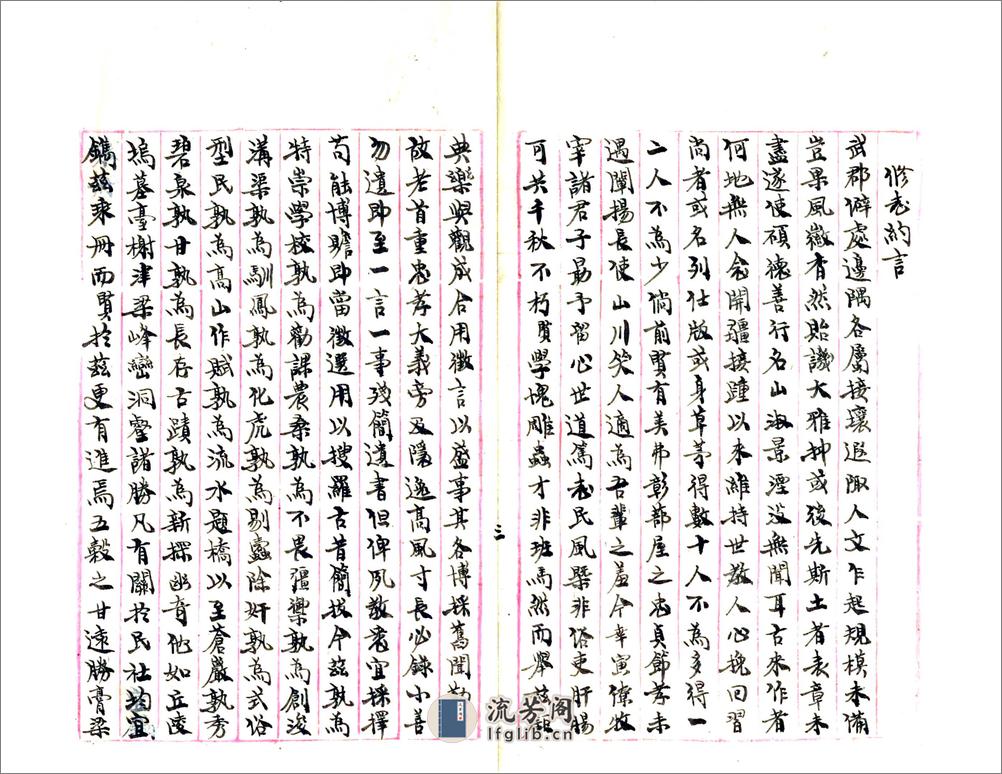 修志約言
武郡僻處邊隅各屬接壤遐陬人文乍起規模未備
豈果風徽杳然貽譏大雅抑或後先斯土者表章未
盡遂使碩德善行名山淑景湮没無聞耳古來作者
何地無人念開疆接踵以來維持世教人心挽回習
尚者或名列仕版或身草茅得數十人不為多得一
二人不為少倘前賢有美弗彰蔀屋之忠貞節孝未
遇闡揚長使山川笑人適為吾輩之羞今幸寅僚牧
宰諸君子勗予留心世道篤志民風槩非俗吏肝腸
可共千秋不朽賢學愧雕蟲才非班馬然而舉茲
三
典樂與觀成合用徵言以盛事其各博採舊聞
故老首重忠孝大義旁及隱逸高風寸長必録小善
勿遺即至一言一事殘簡遺書但俾風教衷宜採擇
苟能博贍即當徵選用以搜羅古昔簡拔今茲孰為
特崇學校孰為勸課農桑孰為不畏彊禦孰為創浚
溝渠孰為馴鳳孰為化虎孰為剔蠹除奸孰為式俗
型民孰為高山作賦孰為流水題橋以至蒼巖孰秀
碧泉孰甘孰為長存古蹟孰為新探幽奇他如丘陵
塢墓臺榭津梁峰巒洞壑諸勝凡有關於民社均宜
鐫茲乘冊而賢於茲更有進焉五穀之甘遠勝膏粱
流芳阁
lfglib.cn